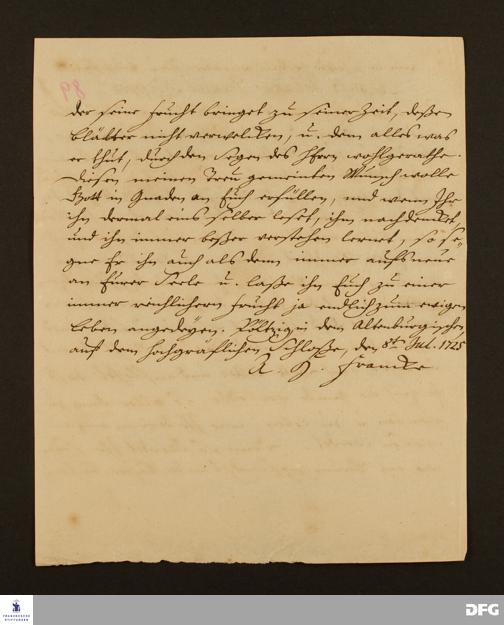 89
der seine Frucht bringet zu seiner Zeit, deßen
Blätter nicht verwelcken, u. dem alles was
er thut, durch den Segen des Herrn wohlgerathe.
Diesen meinen Treu gemeinten Wunsch wolle
Gott in Gnaden an Euch erfüllen, und wenn Ihr
ihn dermal eins selber leset, ihm nachdencket
und ihn immer beßer verstehen lernet, so se-
gne Er ihn auch als denn immer aufs neue
an Eurer Seele u. laße ihn Euch zu einer
immer reichlichern Frucht ja endlich zum ewigen
Leben angedeyen. Pöltzig in dem Altenburgischen
auf dem hochgräflichen Schloße, den 8t. Jul. 1725
A. H. Francke
FRANCKESCHE
STIFTUNGEN
DFG